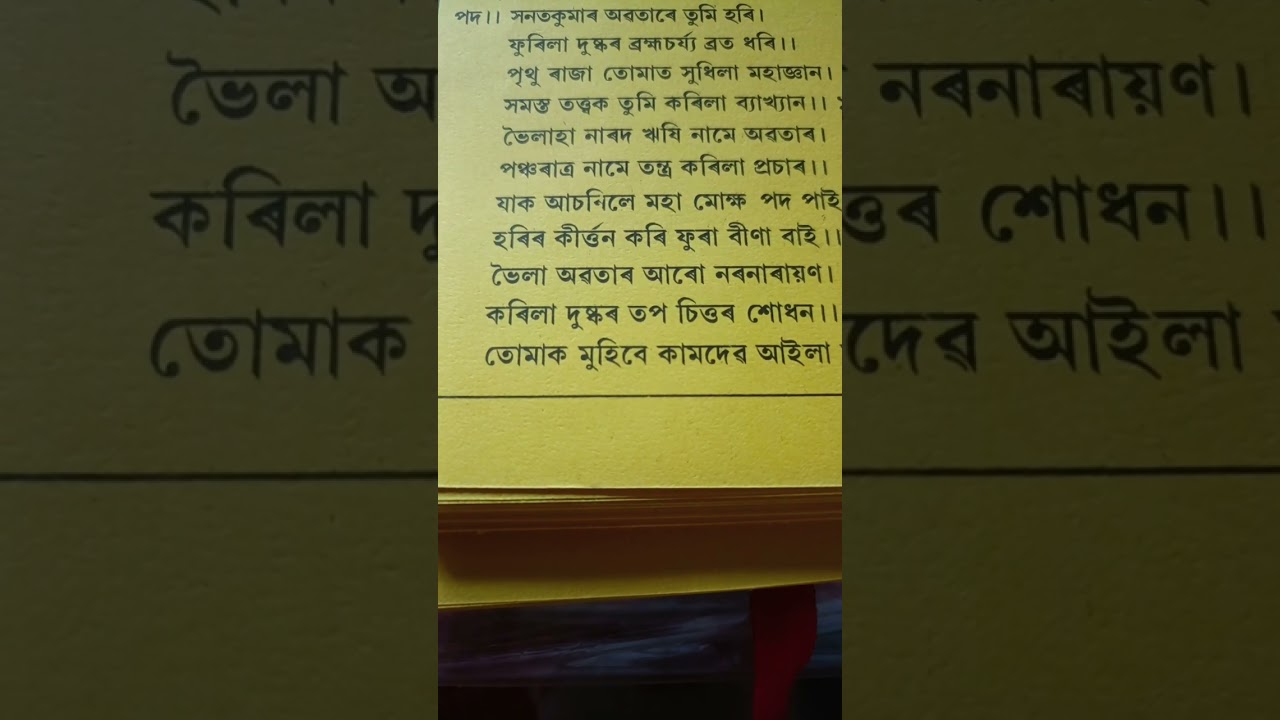 পদ।। সনতকুমাৰ অৱতাৰে তুমি হৰি।
ফুৰিলা দুষ্কৰ ব্ৰহ্মচৰ্য্য ব্ৰত ধৰি।।
পৃথু ৰাজা তোমাত সুধিলা মহাজ্ঞান।
সমস্ত তত্ত্বক তুমি কৰিলা ব্যাখ্যান।।
ভৈলাহা নাৰদ ঋষি নামে অৱতাৰ।
পঞ্চৰাত্ৰ নামে তন্ত্ৰ কৰিলা প্ৰচাৰ।।
যাক আচৰিলে মহা মোক্ষ পদ পাই
হৰিৰ কীৰ্ত্তন কৰি ফুৰা বীণা বাই।।
ভৈলা অৱতাৰ আৰো নৰনাৰায়ণ।
কৰিলা দুষ্কৰ তপ চিত্তৰ শোধন।।
তোমাক মুহিবে কামদেৱ আইলা